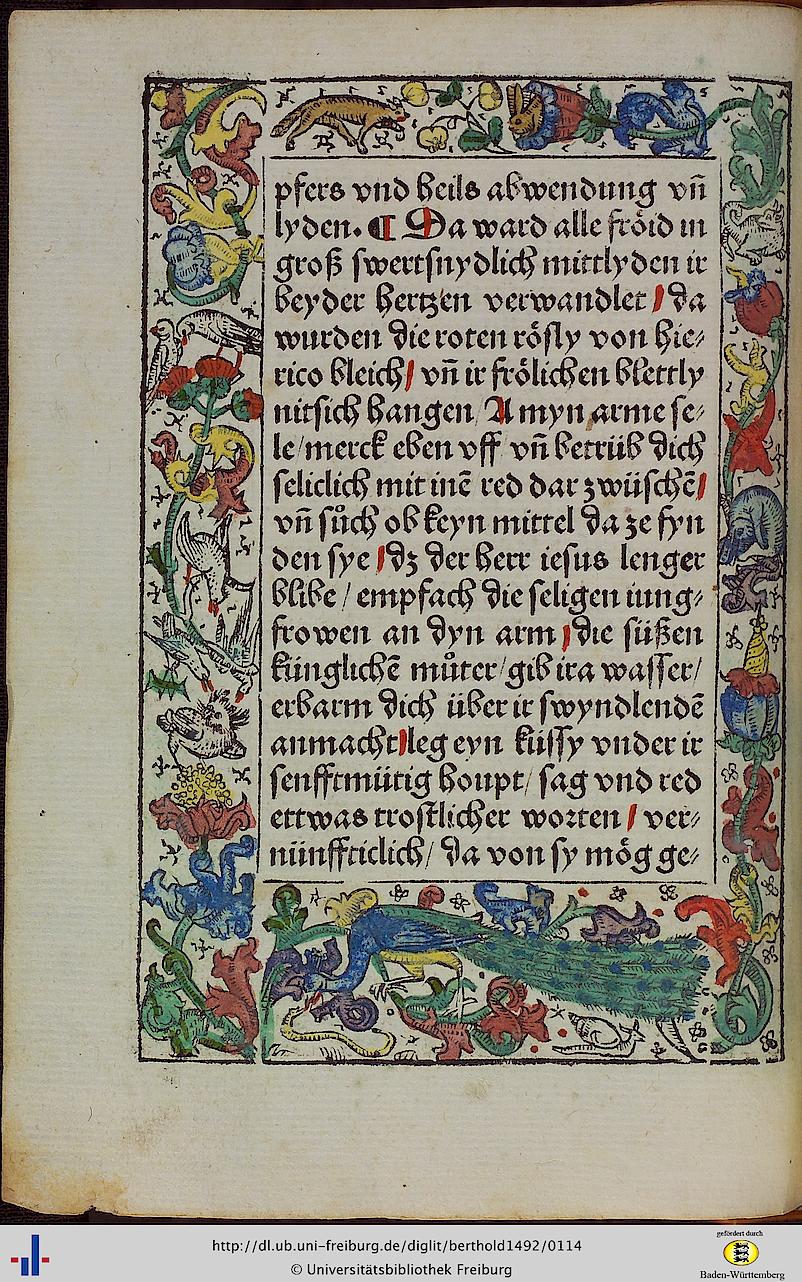 pfers vnd heils abwendung vn̄
lyden. ¶ Da ward alle fröid in
groß swertsnydlich mittlyden ir
beyder hertzen verwandlet / da
wurden die roten rösly von hie⸗
rico bleich / vn̄ ir frölichen blettly
nitsich hangen / A myn arme se⸗
le / merck eben vff / vn̄ betrüb dich
seliclich mit inē red dar zwüschē /
vn̄ sůch ob keyn mittel da ze fyn
den sye / dz der herr iesus lenger
blibe / empfach die seligen iung⸗
frowen an dyn arm / die süßen
künglichē můter / gib ira wasser /
erbarm dich über ir swyndlendē
anmacht / leg eyn küssy vnder ir
senfftmütig houpt / sag vnd red
ettwas trostlicher worten / ver⸗
nünffticlich / da von sy mög ge⸗
http://dl.ub.uni-freiburg.de/diglit/berthold1492/0114
© Universitätsbibliothek Freiburg
gefördert durch
Baden-Württemberg